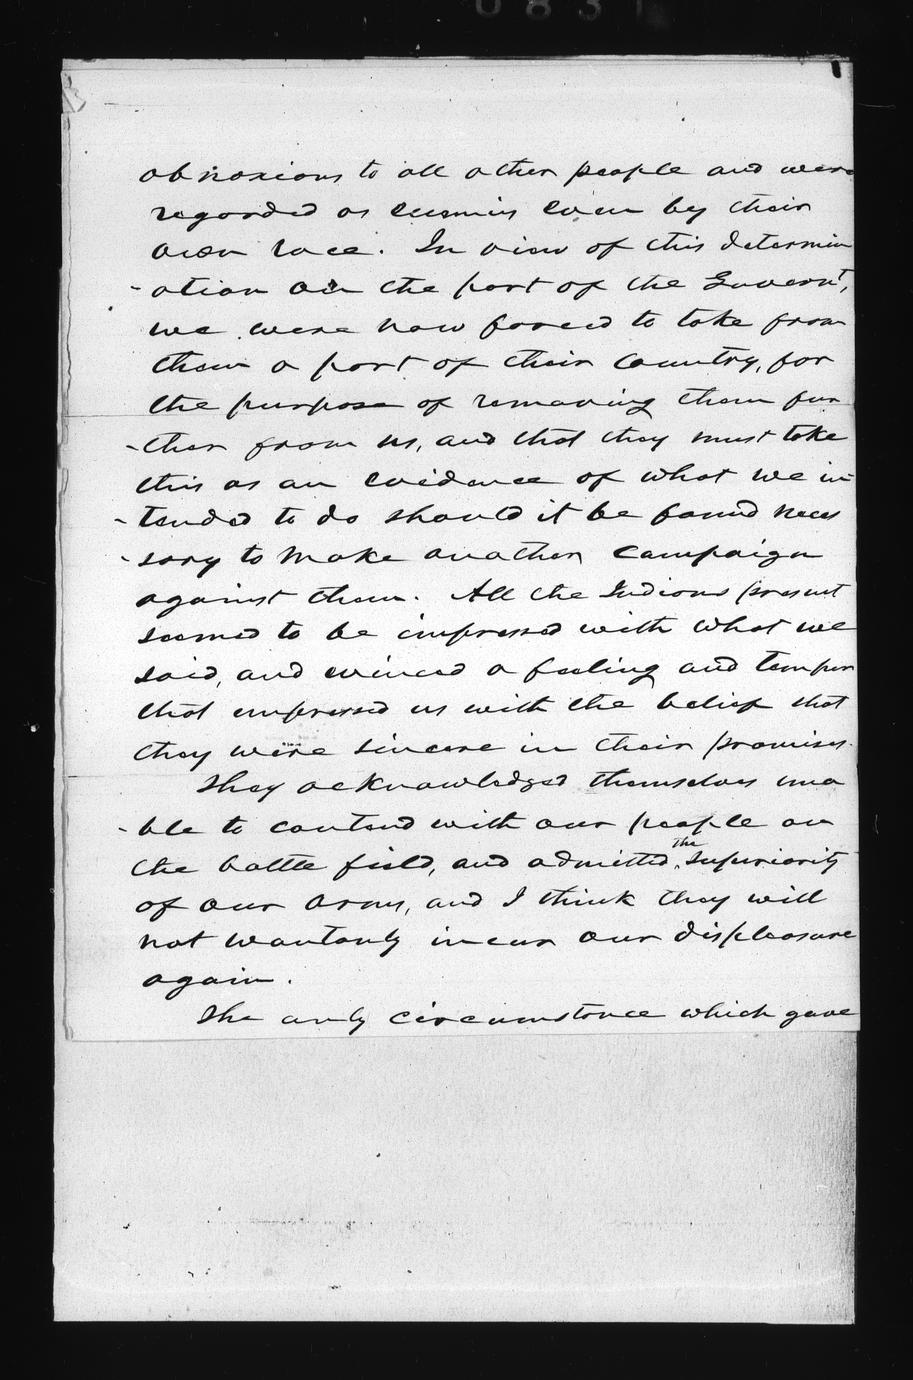 0831
obnoxious to all other people and were
regarded as enemies even by their
own race. In view of this determin
-ation on the part of the Governt,
we were now forced to take from
them a part of their country, for
the purpose of removing them fur
-ther from us, and that they must take
this as an evidence of what we in-
-tended to do should it be found neces
-sary to make another campaign
against them. All the Indians present
seemed to be impressed with what we
said, and evinced a feeling and temper
that impressed us with the belief that
they were sincere in their promises.
They acknowledged themselves una
-ble to contend with our people on
the battle field, and admitted the superiority
of our arms, and I think they will
not wantonly incur our displeasure
again.
The only circumstance which gave